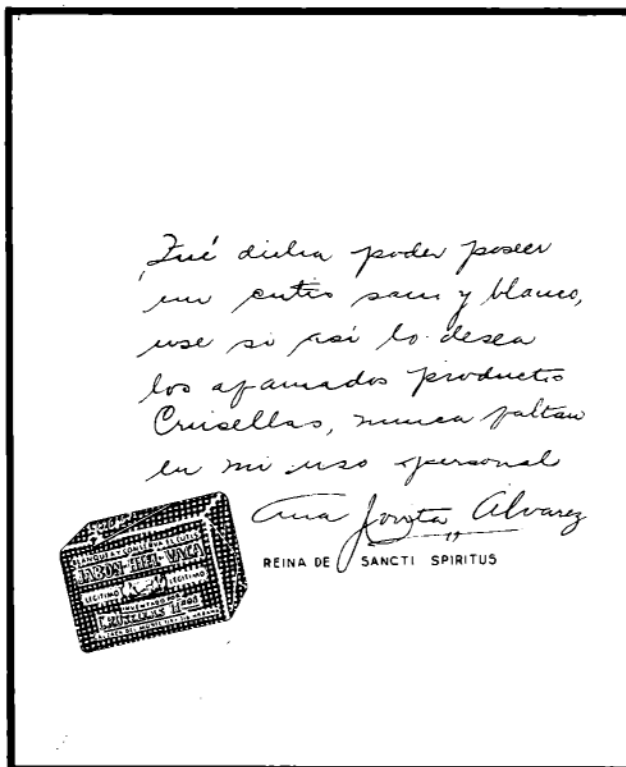 ¡Qué dicha poder poseer
un cutis sano y blanco,
use si así lo desea
los afamados productos
Crusellas, nunca faltan
en mi uso personal
Ana Álvarez
REINA DE SANCTI SPIRITUS
BLANQUEA Y CONSERVA EL CUTIS
JABON HIEL DE VACA
LEGITIMO LEGITIMO
INVENTADO POR
CRUSELLAS Hnos